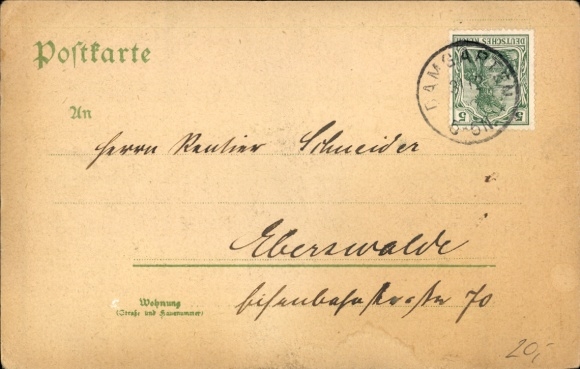 Postkarte
DEUTSCHES REICH
5 5
DAMGARTEN
An
Herrn Rentier Schneider
Eberswalde
Wohnung
(Straße und Hausnummer)
Eisenbahnstraße 70
20,-